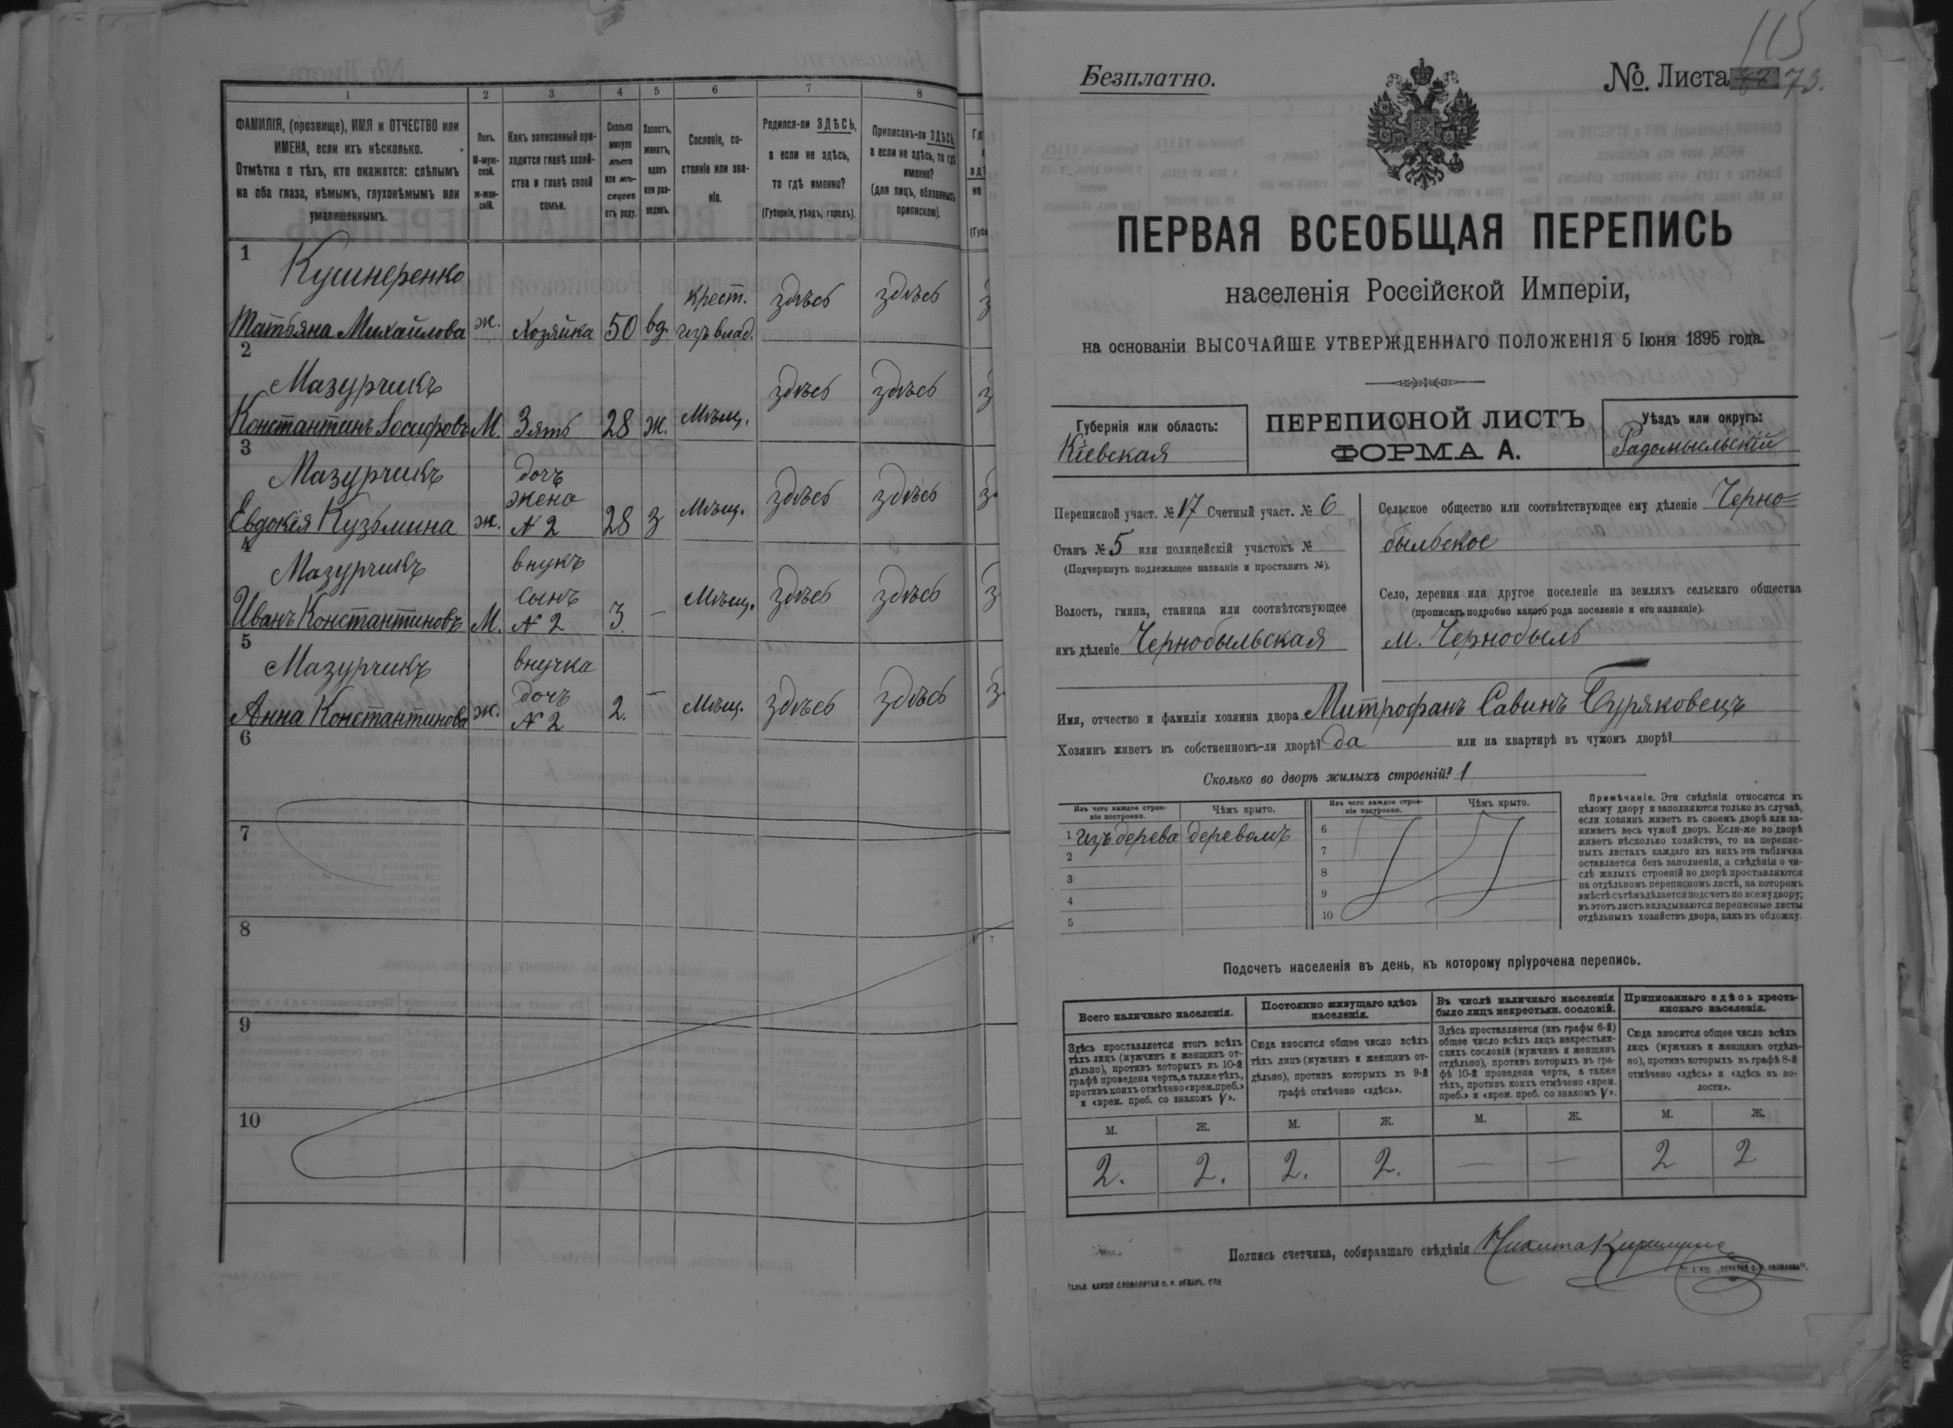 1 2 3 4 5 6 7 8
ФАМИЛІЯ, (прозвище), ИМЯ и ОТЧЕСТВО или
ИМЕНА, если ихъ нѣсколько.
Отмѣтка о тѣхъ, кто окажется: слѣпымъ
на оба глаза, нѣмымъ, глухонѣмымъ или
умалишеннымъ.
Полъ.
М-муж-
ской.
ж-жен-
скій.
Какъ записанный при-
ходится главѣ хозяй-
ства и главѣ своей
семьи.
Сколько
минуло
лѣтъ
или мѣ-
сяцевъ
отъ роду.
Холостъ,
женатъ,
вдовъ
или раз-
веденъ.
Сословіе, со-
стояніе или зва-
ніе.
Родился-ли ЗДѢСЬ,
а если не здѣсь,
то гдѣ именно?
(Губернія, уѣздъ, городъ).
Приписанъ-ли ЗДѢСЬ,
а если не здѣсь, то гдѣ
именно?
(для лицъ, обязанныхъ
припискою).
1
Кушнеренко
Татьяна Михайлова ж. Хозяйка 50 вд. крест. изъ влад. здѣсь здѣсь
2
Мазурчикъ
Константинъ Іосифовъ М. Зять 28 ж. Мѣщ. здѣсь здѣсь
3
Мазурчикъ дочь
жена
Евдокія Кузьмина ж. № 2 28 з Мѣщ. здѣсь здѣсь
4
Мазурчикъ внукъ
сынъ
Иванъ Константиновъ М. № 2 3. — Мѣщ. здѣсь здѣсь
5
Мазурчикъ внучка
дочь
Анна Константинова ж. № 2 2. — Мѣщ. здѣсь здѣсь
6
7
8
9
10
115
Безплатно.
№. Листа 73.
ПЕРВАЯ ВСЕОБЩАЯ ПЕРЕПИСЬ
населенія Россійской Имперіи,
на основаніи ВЫСОЧАЙШЕ УТВЕРЖДЕННАГО ПОЛОЖЕНІЯ 5 Іюня 1895 года.
Губернія или область:
Кіевская
ПЕРЕПИСНОЙ ЛИСТЪ
ФОРМА А.
Уѣздъ или округъ:
Радомысльскій
Переписной участ. № 17 Счетный участ. № 6
Станъ № 5 или полицейскій участокъ №
(Подчеркнуть подлежащее названіе и проставить №).
Волость, гмина, станица или соотвѣтствующее
имъ дѣленіе Чернобыльская
Сельское общество или соотвѣтствующее ему дѣленіе Черно=
быльское
Село, деревня или другое поселеніе на земляхъ сельскаго общества
(прописать подробно какого рода поселеніе и его названіе).
м. Чернобыль
Имя, отчество и фамилія хозяина двора Митрофанъ Савинъ Буряковецъ
Хозяинъ живетъ въ собственномъ-ли дворѣ? да или на квартирѣ въ чужомъ дворѣ?
Сколько во дворѣ жилыхъ строеній? 1
Изъ чего каждое строе-
ніе построено.
Чѣмъ крыто.
Изъ чего каждое строе-
ніе построено.
Чѣмъ крыто.
1 изъ дерева деревомъ
2
3
4
5
6
7
8
9
10
Примѣчаніе. Эти свѣдѣнія относятся къ
цѣлому двору и заполняются только въ случаѣ,
если хозяинъ живетъ въ своемъ дворѣ или за-
нимаетъ весь чужой дворъ. Если-же во дворѣ
живетъ нѣсколько хозяйствъ, то на перепис-
ныхъ листахъ каждаго изъ нихъ эта табличка
оставляется безъ заполненія, а свѣдѣнія о чи-
слѣ жилыхъ строеній во дворѣ проставляются
на отдѣльномъ переписномъ листѣ, на которомъ
вмѣстѣ съ тѣмъ дѣлается подсчетъ по всему двору;
въ этотъ листъ вкладываются переписные листы
отдѣльныхъ хозяйствъ двора, какъ въ обложку.
Подсчетъ населенія въ день, къ которому пріурочена перепись.
Всего наличнаго населенія.
Здѣсь проставляется итогъ всѣхъ
тѣхъ лицъ (мужчинъ и женщинъ от-
дѣльно), противъ которыхъ въ 10-й
графѣ проведена черта, а также тѣхъ,
противъ коихъ отмѣчено «врем. преб.»
и «врем. преб. со знакомъ V».
Постоянно живущаго здѣсь
населенія.
Сюда вносится общее число всѣхъ
тѣхъ лицъ (мужчинъ и женщинъ от-
дѣльно), противъ которыхъ въ 9-й
графѣ отмѣчено «здѣсь».
Въ числѣ наличнаго населенія
было лицъ некрестьян. сословій.
Здѣсь проставляется (изъ графы 6-й)
общее число всѣхъ лицъ некрестьян-
скихъ сословій (мужчинъ и женщинъ
отдѣльно), противъ которыхъ въ гра-
фѣ 10-й проведена черта, а также
тѣхъ, противъ коихъ отмѣчено «врем.
преб.» и «врем. преб. со знакомъ V».
Приписаннаго здѣсь кресть-
янскаго населенія.
Сюда вносится общее число всѣхъ
лицъ (мужчинъ и женщинъ отдѣль-
но), противъ которыхъ въ графѣ 8-й
отмѣчено «здѣсь» и «здѣсь въ во-
лости».
М. Ж. М. Ж. М. Ж. М. Ж.
2. 2. 2. 2. — — 2 2
Подпись счетчика, собиравшаго свѣдѣнія Никита